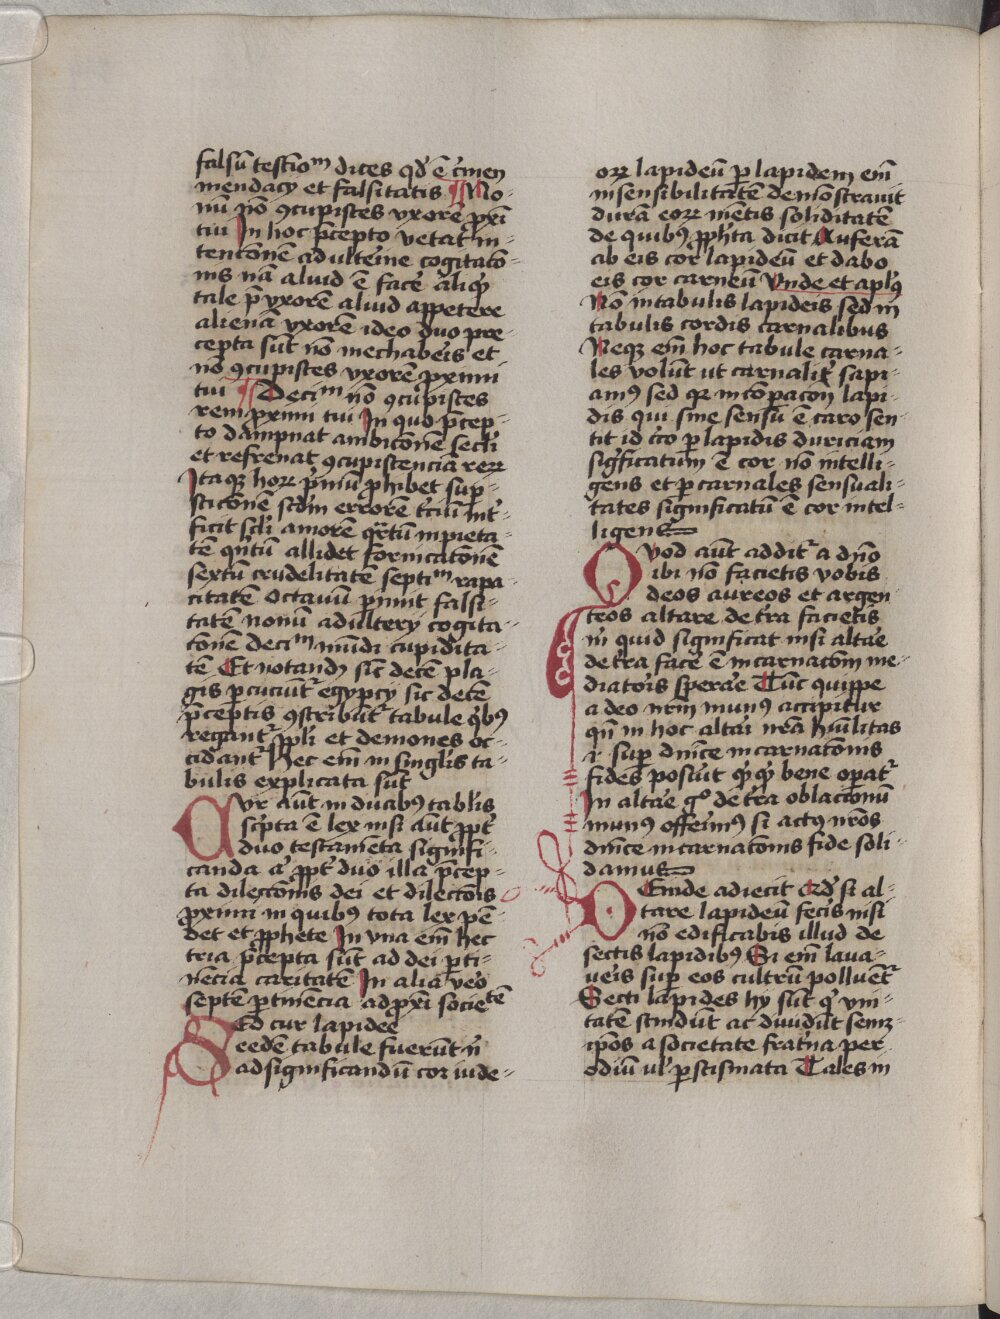 falsū testīoᵐ dices qd' ē c̄men
mendacij et falsitatis ¶ No-
nū nō ꝯcupistes vxorē ꝓxī
tui In hoc p̄cepto vetat in-
tentōnem adulterine cogitatō-
nis nā aliud ē facē aliqͥ
tale p̄ vxorē aliud appetere
alienā vxorē ideo duo pre
cepta sūt nō mechaberis et
nō ꝯcupistes vxorē ꝓximi
tui ¶ Deciᵐ nō ꝯcupistes
rem ꝓximi tui In quo p̄cep-
to dāpnat ambicōnē secli
et refrenat ꝯcupistenciā reꝝ
Itaqꝫ hoꝝ p̄miū ꝓhibet sup-
sticōnē scdm errorē t̄ciū int-
ficit scli amorē qrtū inpieta-
tē qntū allidet fornicatōnē
sextū crudelitatē septiᵐ rapa-
citatē Octauū pimit falsi-
tatē nonū adultery cogita-
tōnē deciᵐ mūdi cupidita-
tē Et notandꝫ sic decē pla-
gis ꝑcuciūt egypcij sic decē
p̄ceptis ꝯstribūt tabule qͥbꝰ
regant ppli et demones oc-
cidant Hec em̄ in singlis ta-
bulis explicata sūt
Cvr aūt in duabꝰ tablis
sc̄pta ē lex nisi aūt ꝓpt
duo testamēta signifi-
canda aͥ ꝓpt duo illa p̄cep-
ta dilectōnis dei et dilectōis
ꝓximi in quibꝰ tota lex pē-
det et ꝓphete In vna em̄ hec
tria p̄cepta sūt ad dei ꝑti-
nēcia caritatē In alia vēo
septē ꝑtinēcia ad ꝓxi societᵉ̄
Sed cur lapidee
eedē tabule fuerūt n̄
ad significandū cor iude-
oꝝ lapideū ꝑ lapidem em̄
insensibilitatē demōstrauit
durā eoꝝ mētis soliditatē
de quibꝰ ꝓphta dicit Auferā
ab eis cor lapideū et dabo
eis cor carneū Vnde et aplꝰ
Nō in tabulis lapideis sed in
tabulis cordis carnalibus
Neqꝫ em̄ hoc tabule carna-
les volūt ut carnalit sapi-
amꝰ sed qꝛ in cōpacōn lapi-
dis qui sine sensū ē caro sen
tit id c̄co ꝑ lapidis duriciam
sigficatum ē cor nō intelli-
gens et ꝑ carnales sensuali-
tates significatū ē cor intel-
ligens
Qvod aūt addit a dn̄o
ibi nō facietis vobis
deos aureos et argen
teos altare de t̄ra facietis
m̄ quid significat nisi altare
de t̄ra facē ē incarnatōm me-
diatoris sperare Tūc quippe
a deo nr̄m munꝰ accipitur
qn̄ in hoc altari nr̄a hūilitas
r sup dnice incarnatōnis
fides posūt qͥqͥ bene operat
In altare gº de t̄ra oblacionū
munꝰ offerimꝰ si actꝰ nr̄os
dnice incarnatōnis fide soli-
damus
Deinde adiecit Qd' si al-
tare lapideū fecis nisi
nō edificabis illud de
sectis lapidibꝰ Si em̄ laua-
ueis sup eos cultrū polluent
Secti lapides hij sūt qͥ vni-
tatē scindūt ac diuidūt semꝫ-
ipos a societate frat̄na per
odiū ul' ꝑ scismata Tales in